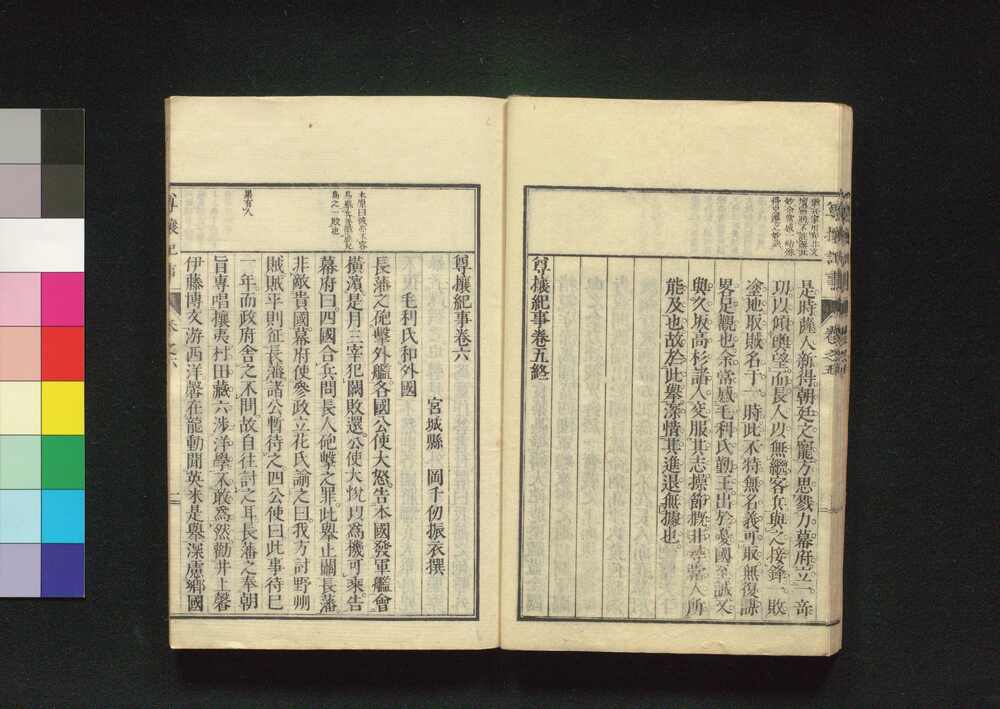 是時薩人新得朝廷之寵方思戮力幕府立一奇
功以傾輿望而長人以無繼客兵與之接鋒一敗
塗地取賊名于一時此不特無名義可取無復謀
畧足觀也余常感毛利氏勤王出於憂國至誠又
與久坂高杉諸人交服其志操節概非尋常人所
能及也故於此舉深惜其進退無據也
尊攘紀事卷五終
尊攘紀事卷六
宮城縣 岡千仞振衣撰
毛利氏和外國
長藩之砲擊外艦各國公使大怒告本國發軍艦會
橫濱是月三宰犯闕敗還公使大悅以爲機可乘告
幕府曰四國合兵問長人砲擊之罪此舉止關長藩
非敵貴國幕府使參政立花氏諭之曰我方討野州
賊賊平則征長藩諸公暫待之四公使曰此事待已
一年而政府舍之不問故自往討之耳長藩之奉朝
旨專唱攘夷村田藏六涉洋學不敢爲然勸井上馨
伊藤博文游西洋馨在龍動聞英米是舉深慮鄉國
果有人